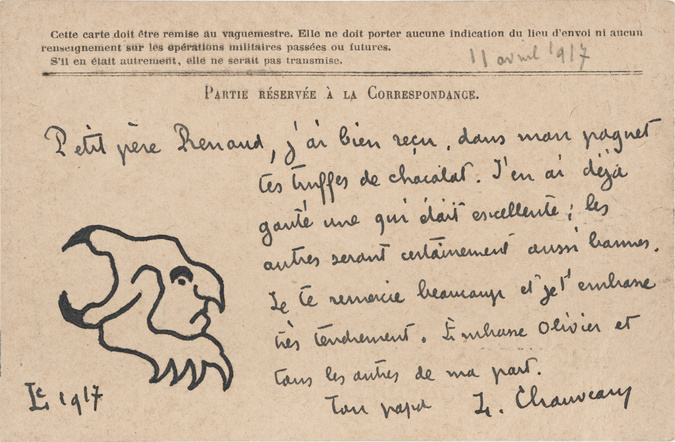 Cette carte doit être remise au vaguemestre. Elle ne doit porter aucune indication du lieu d'envoi ni aucun
renseignement sur les opérations militaires passées ou futures.
S'il en était autrement, elle ne serait pas transmise.
11 avril 1917
Partie réservée à la Correspondance.
Petit père Renaud, j'ai bien reçu, dans mon paquet
tes truffes de chocolat. J'en ai déjà
gouté une qui était excellente ; les
autres seront certainement aussi bonnes.
Je te remercie beaucoup et je t'embrasse
très tendrement. Embrasse Olivier et
tous les autres de ma part.
Ton papa L. Chauveau
Lc 1917